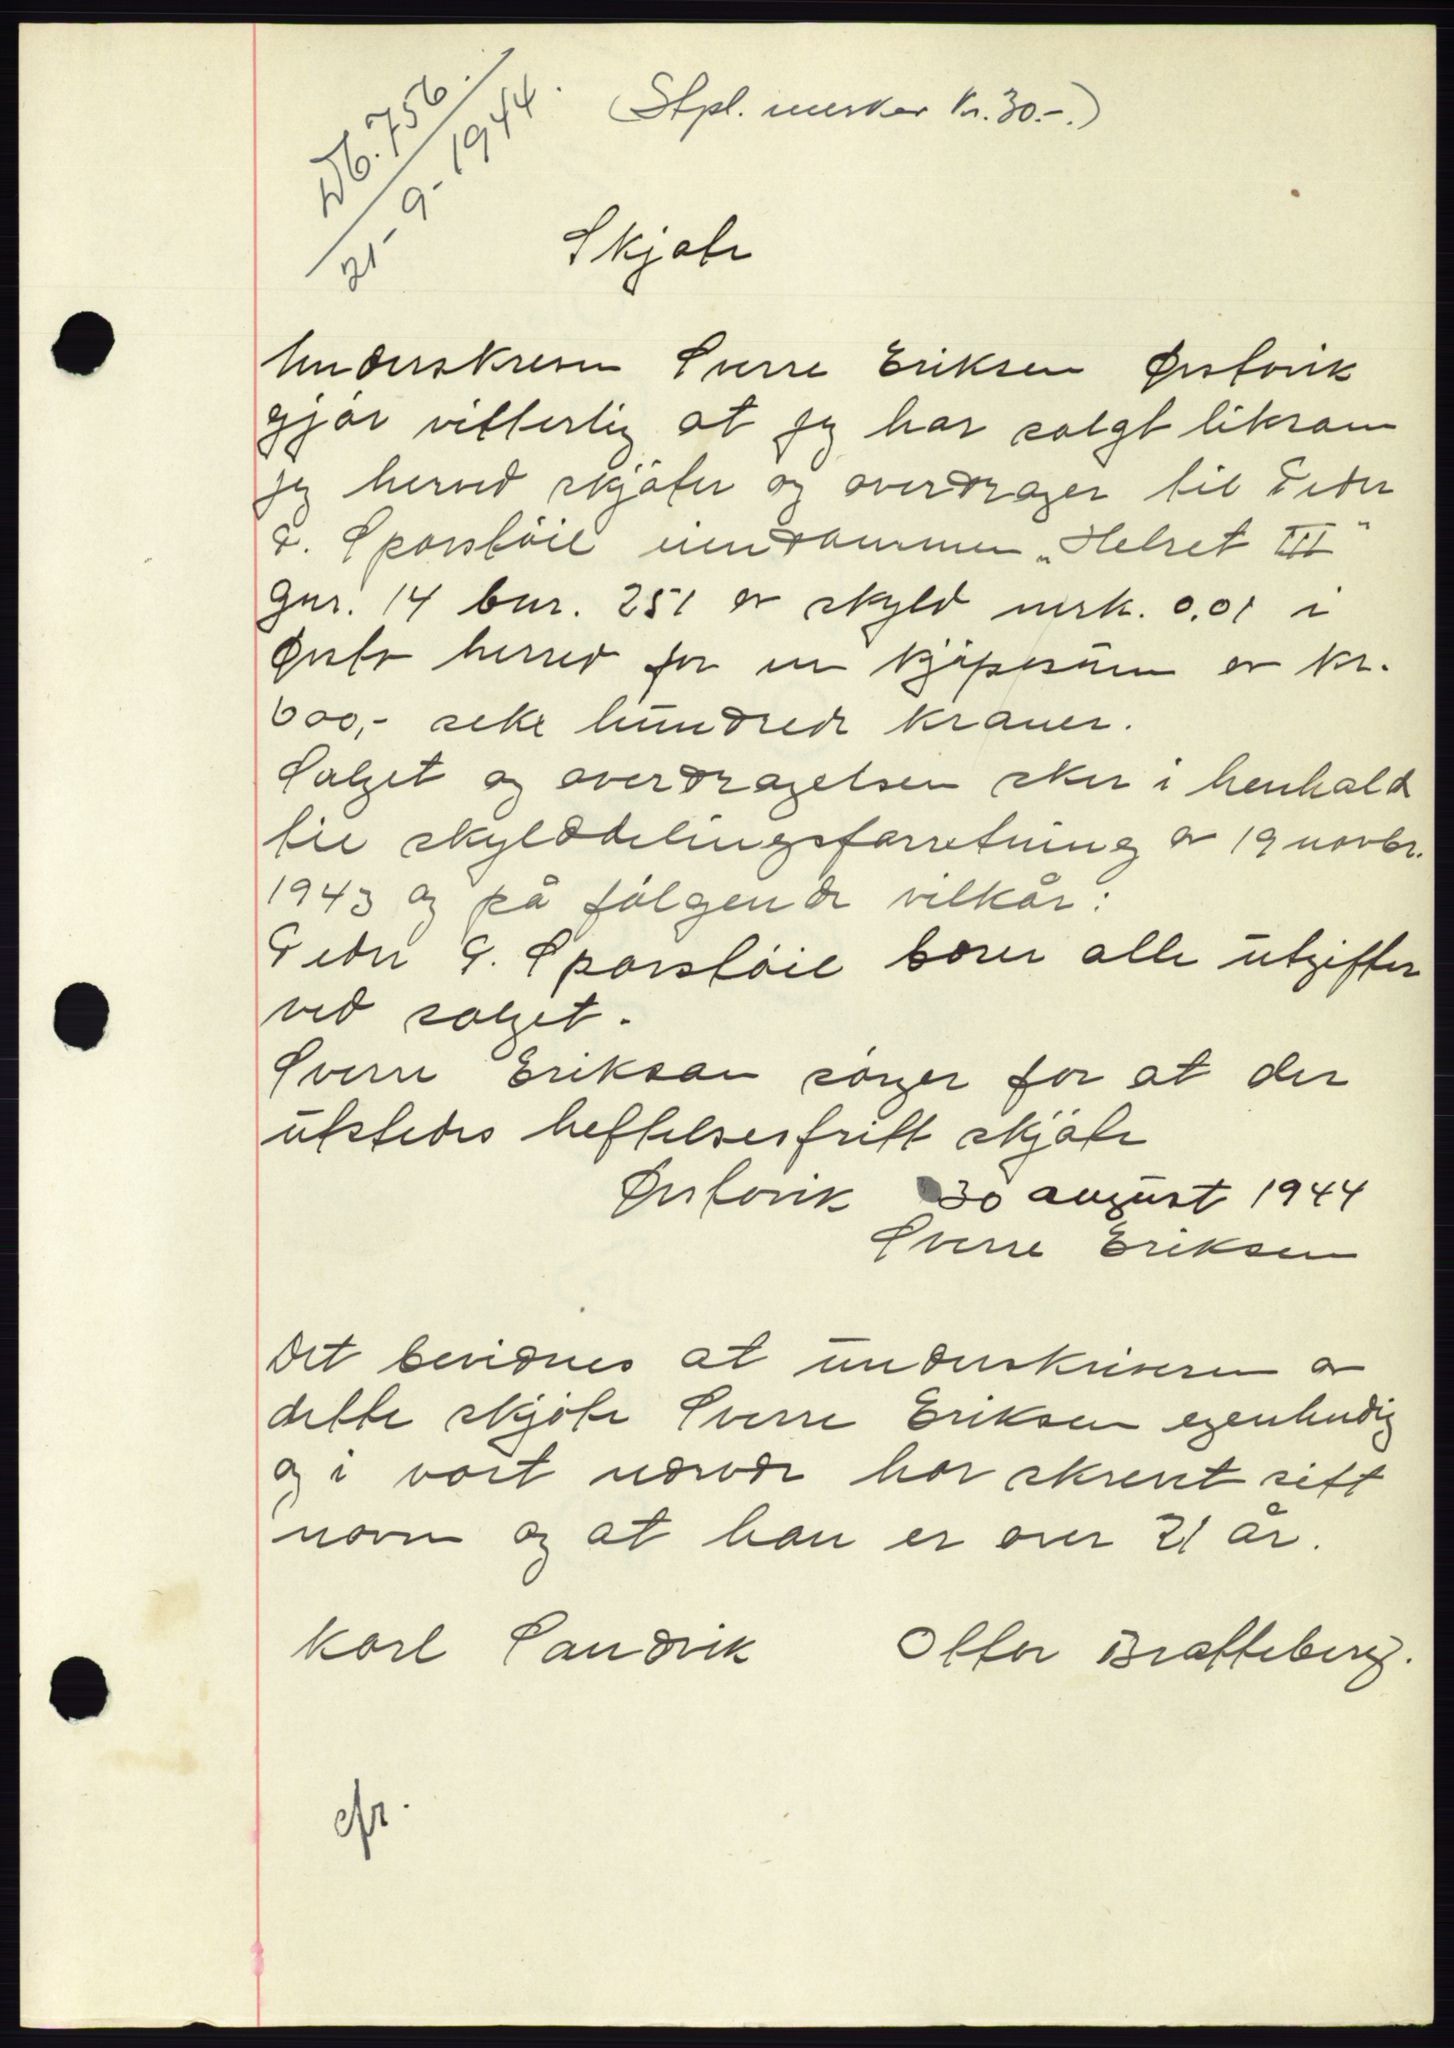 Db. 756.
21-9-1944.
(Stpl. merker kr. 30.-.)
Skjøte
Underskreven Sverre Eriksen Ørstavik
gjør vitterlig at jeg har solgt liksom
jeg herved skjøter og overdrager til Peder
P. Sporstøil eiendommen „Helset III"
gnr. 14 bnr. 251 av skyld mrk. 0.01 i
Ørsta herred for en kjøpesum av kr.
600,- seks hundrede kroner.
Salget og overdragelsen sker i henhold
til skylddelingsforretning av 19 novbr.
1943 og på følgende vilkår:
Peder P. Sporstøil bærer alle utgifter
ved salget.
Sverre Eriksen sørger for at der
utstedes heftelsesfritt skjøte
Ørstavik 30 august 1944
Sverre Eriksen
Det bevidnes at underskriveren av
dette skjøte Sverre Eriksen egenhendig
og i vort nærvær har skrevet sitt
navn og at han er over 21 år.
Karl Sandvik Ottar Bratteberg.
cfr.